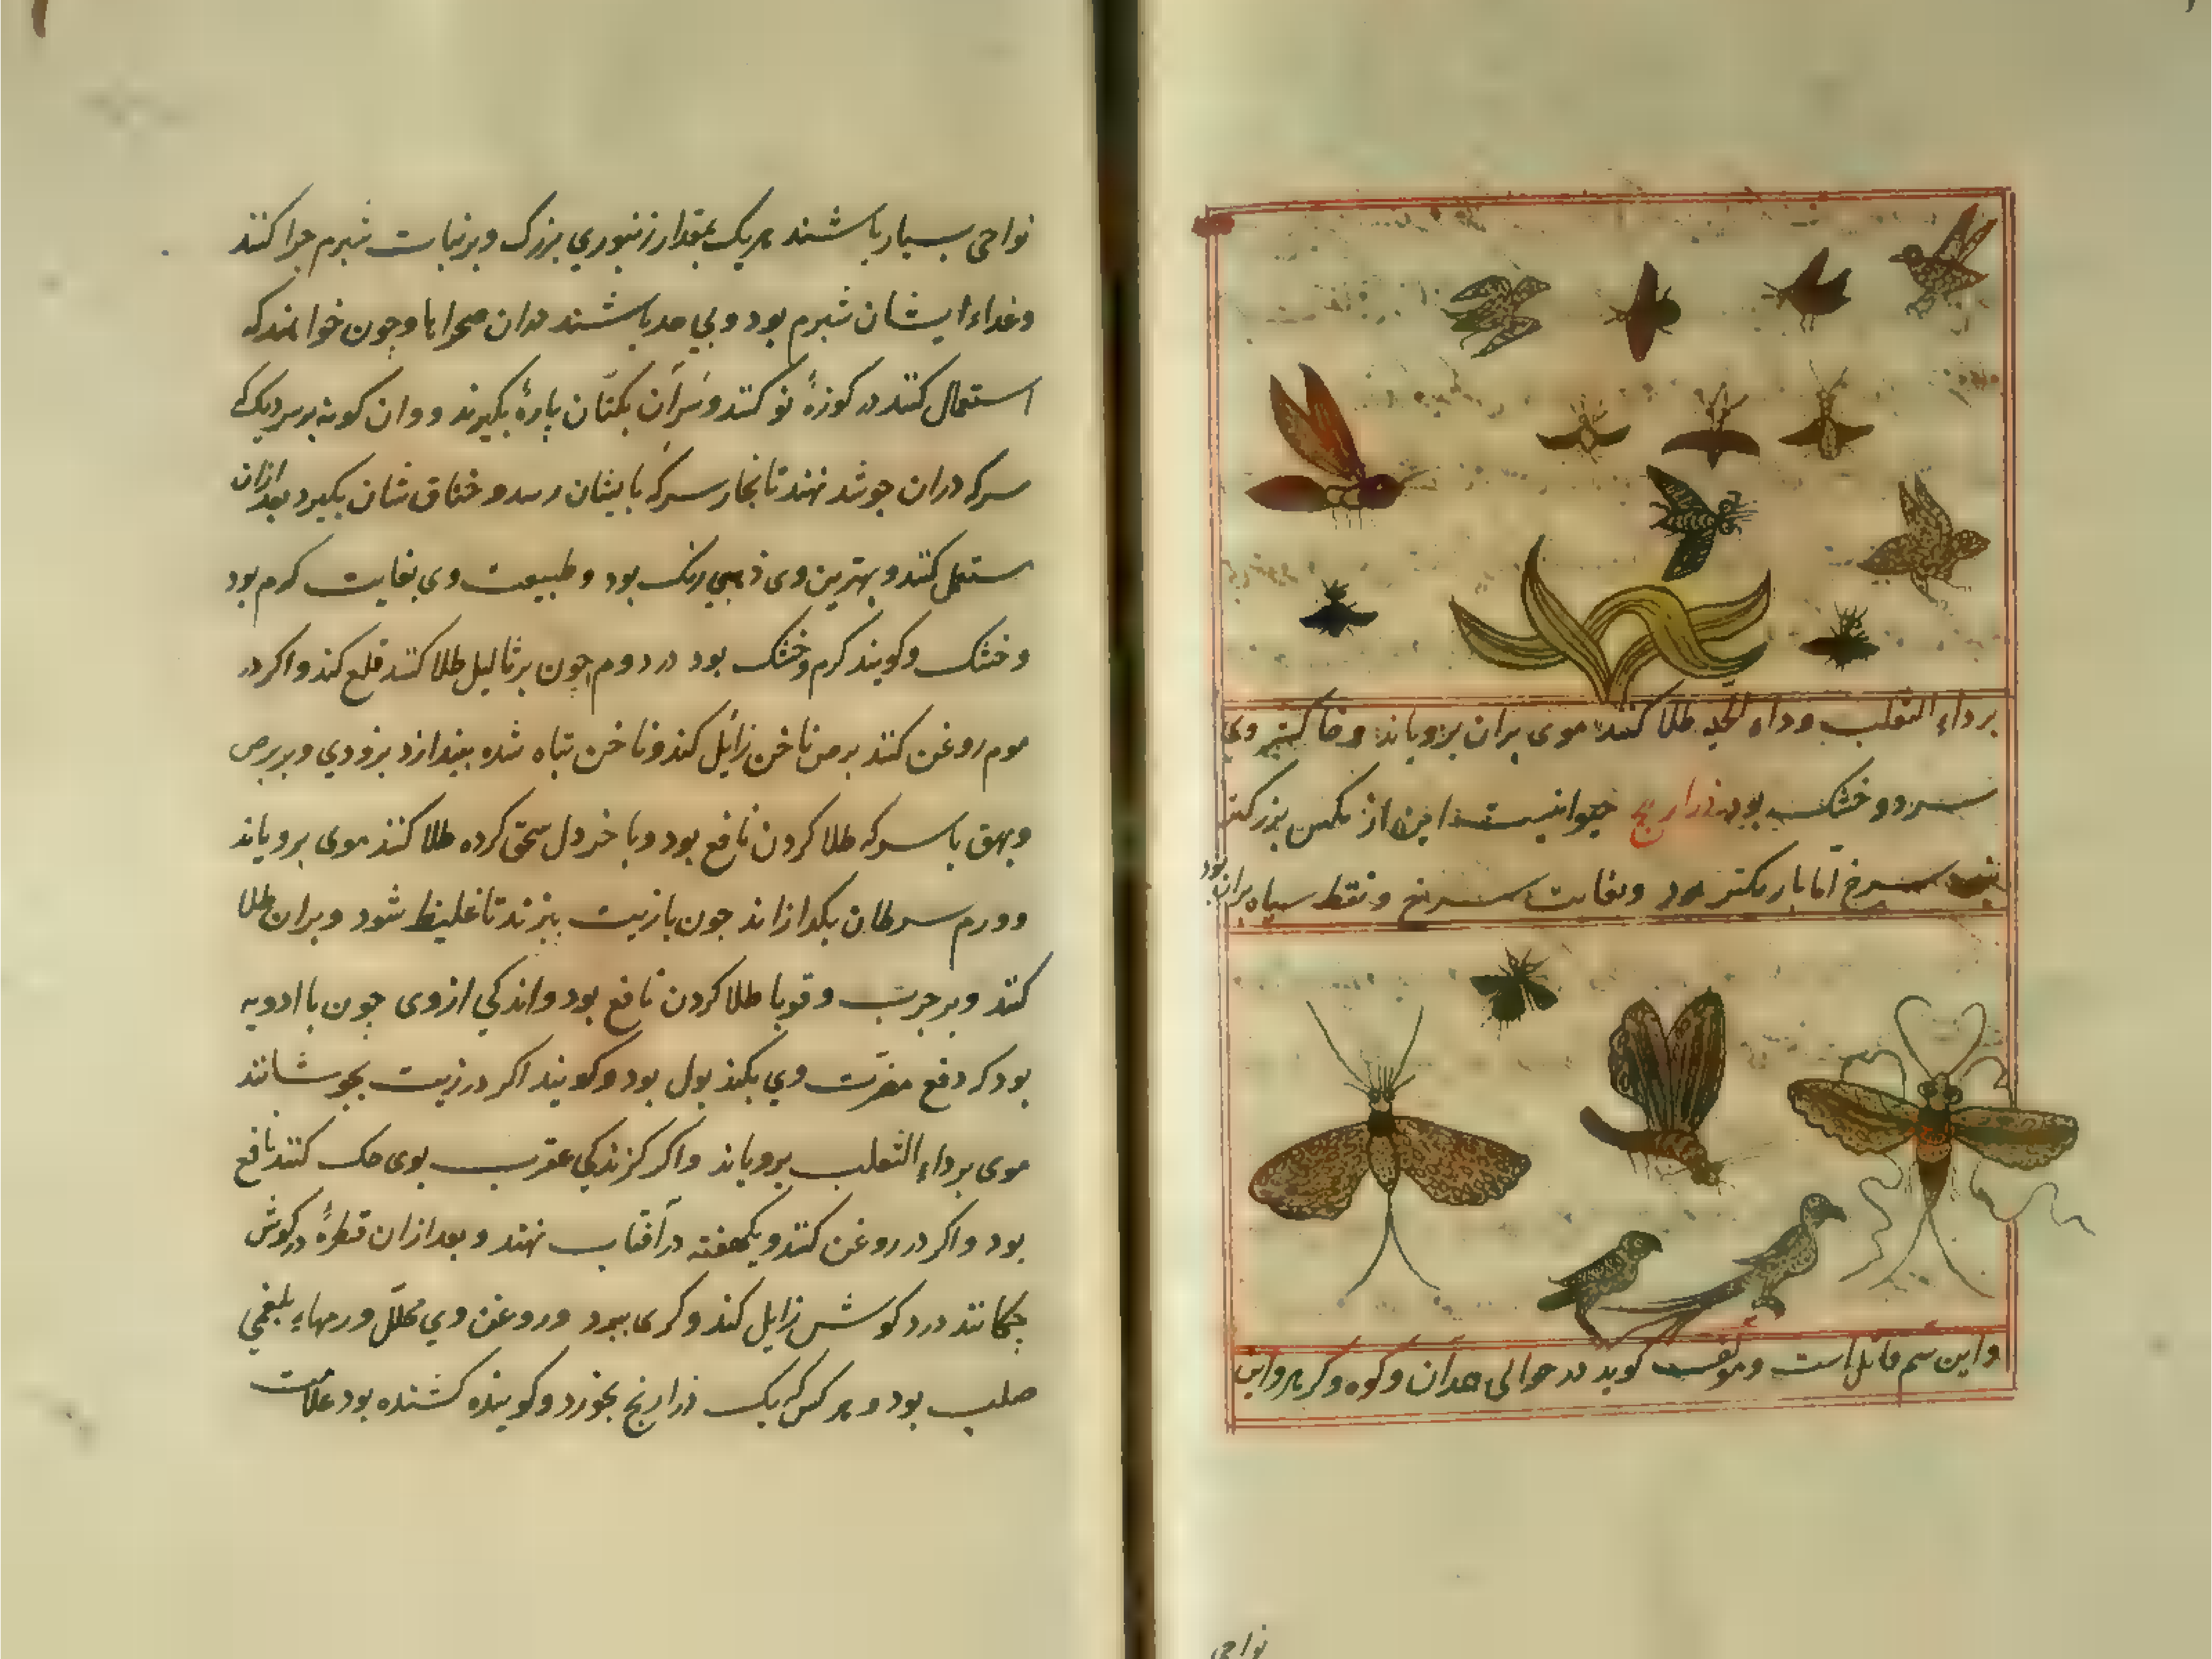 برداء الثعلب وداء الحیه طلا کنند موی بران برویاند وخاکستر وی
سرد و خشک بود ذراریح حیوانیست این از مکس بزرکتر
سرخ اما باریکتر بود وبغایت سرخ ونقط سیاه بران بود
واین سم قاتل است ومولف کوید در حوالی همدان وکوه وکر هرواین
نواحی
نواحی بسیار باشند هریک بمقدار زنبوری بزرک وبر نبات شبرم جرا کنند
وغذاء ایشان شبرم بود وبی حد باشند دران صحراها وجون خواهند که
استعمال کنند در کوزهٔ نو کنند وسرآن بکتان پارهٔ بکیرند ووان کوبه برسر دیک که
سرکه دران جوشد نهند تا بخار سرکه بایشان رسد وخناق شان بکیرد بعد ازان
مستعمل کنند وبهترین وی ذهبی رنک بود وطبیعت وی بغایت کرم بود
وخشک وکویند کرم وخشک بود در دوم چون برثالیل طلا کنند قلع کند واکر در
موم روغن کنند برص ناخن زائل کند وناخن تباه شده بیندازد بزودی وبر برص
وبهق با سرکه طلا کردن نافع بود وبا خردل سحق کرده طلا کنند موی برویاند
وورم سرطان بکدازاند جون با زیت بپزند تا غلیظ شود وبران طلا
کنند وبر جرب وقوبا طلا کردن نافع بود واندکی ازوی چون با ادویه
بود که دفع مضرت وی بکند بول بود وکویند اکر در زیت بجوشانند
موی برداء الثعلب برویاند واکر کزندکی عقرب بوی حک کنند نافع
بود واکر در روغن کنند ویکهفته در آفتاب نهند وبعد ازان قطرهٔ در کوش
چکانند درد کوش زایل کند وکری ببرد وروغن وی محلل ورمهاء بلغمی
صلب بود وهر کس که یک ذراریح بخورد وکویند کشنده بود علامت